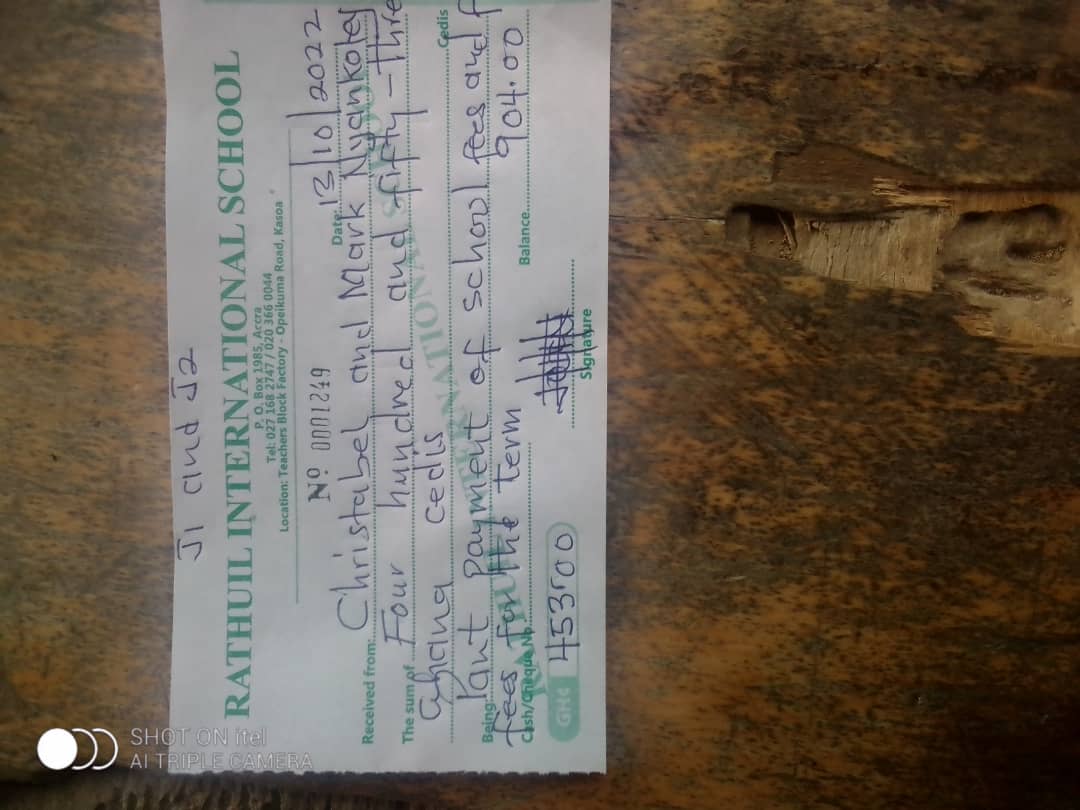 J1 and J2
RATHUIL INTERNATIONAL SCHOOL
P. O. Box 1985, Accra
Tel: 027 168 2747 / 020 366 0044
Location: Teachers Block Factory - Opeikuma Road, Kasoa
Nº 0001249 Date: 13/10/2022
Received from: Christabel and Mark Nyankotey
The sum of Four hundred and fifty-three
Ghana cedis Cedis
Being: Part payment of school fees and
fees for the term Balance 904.00
Cash/Cheque No.
GH¢ 453.00
Signature
SHOT ON itel
AI TRIPLE CAMERA